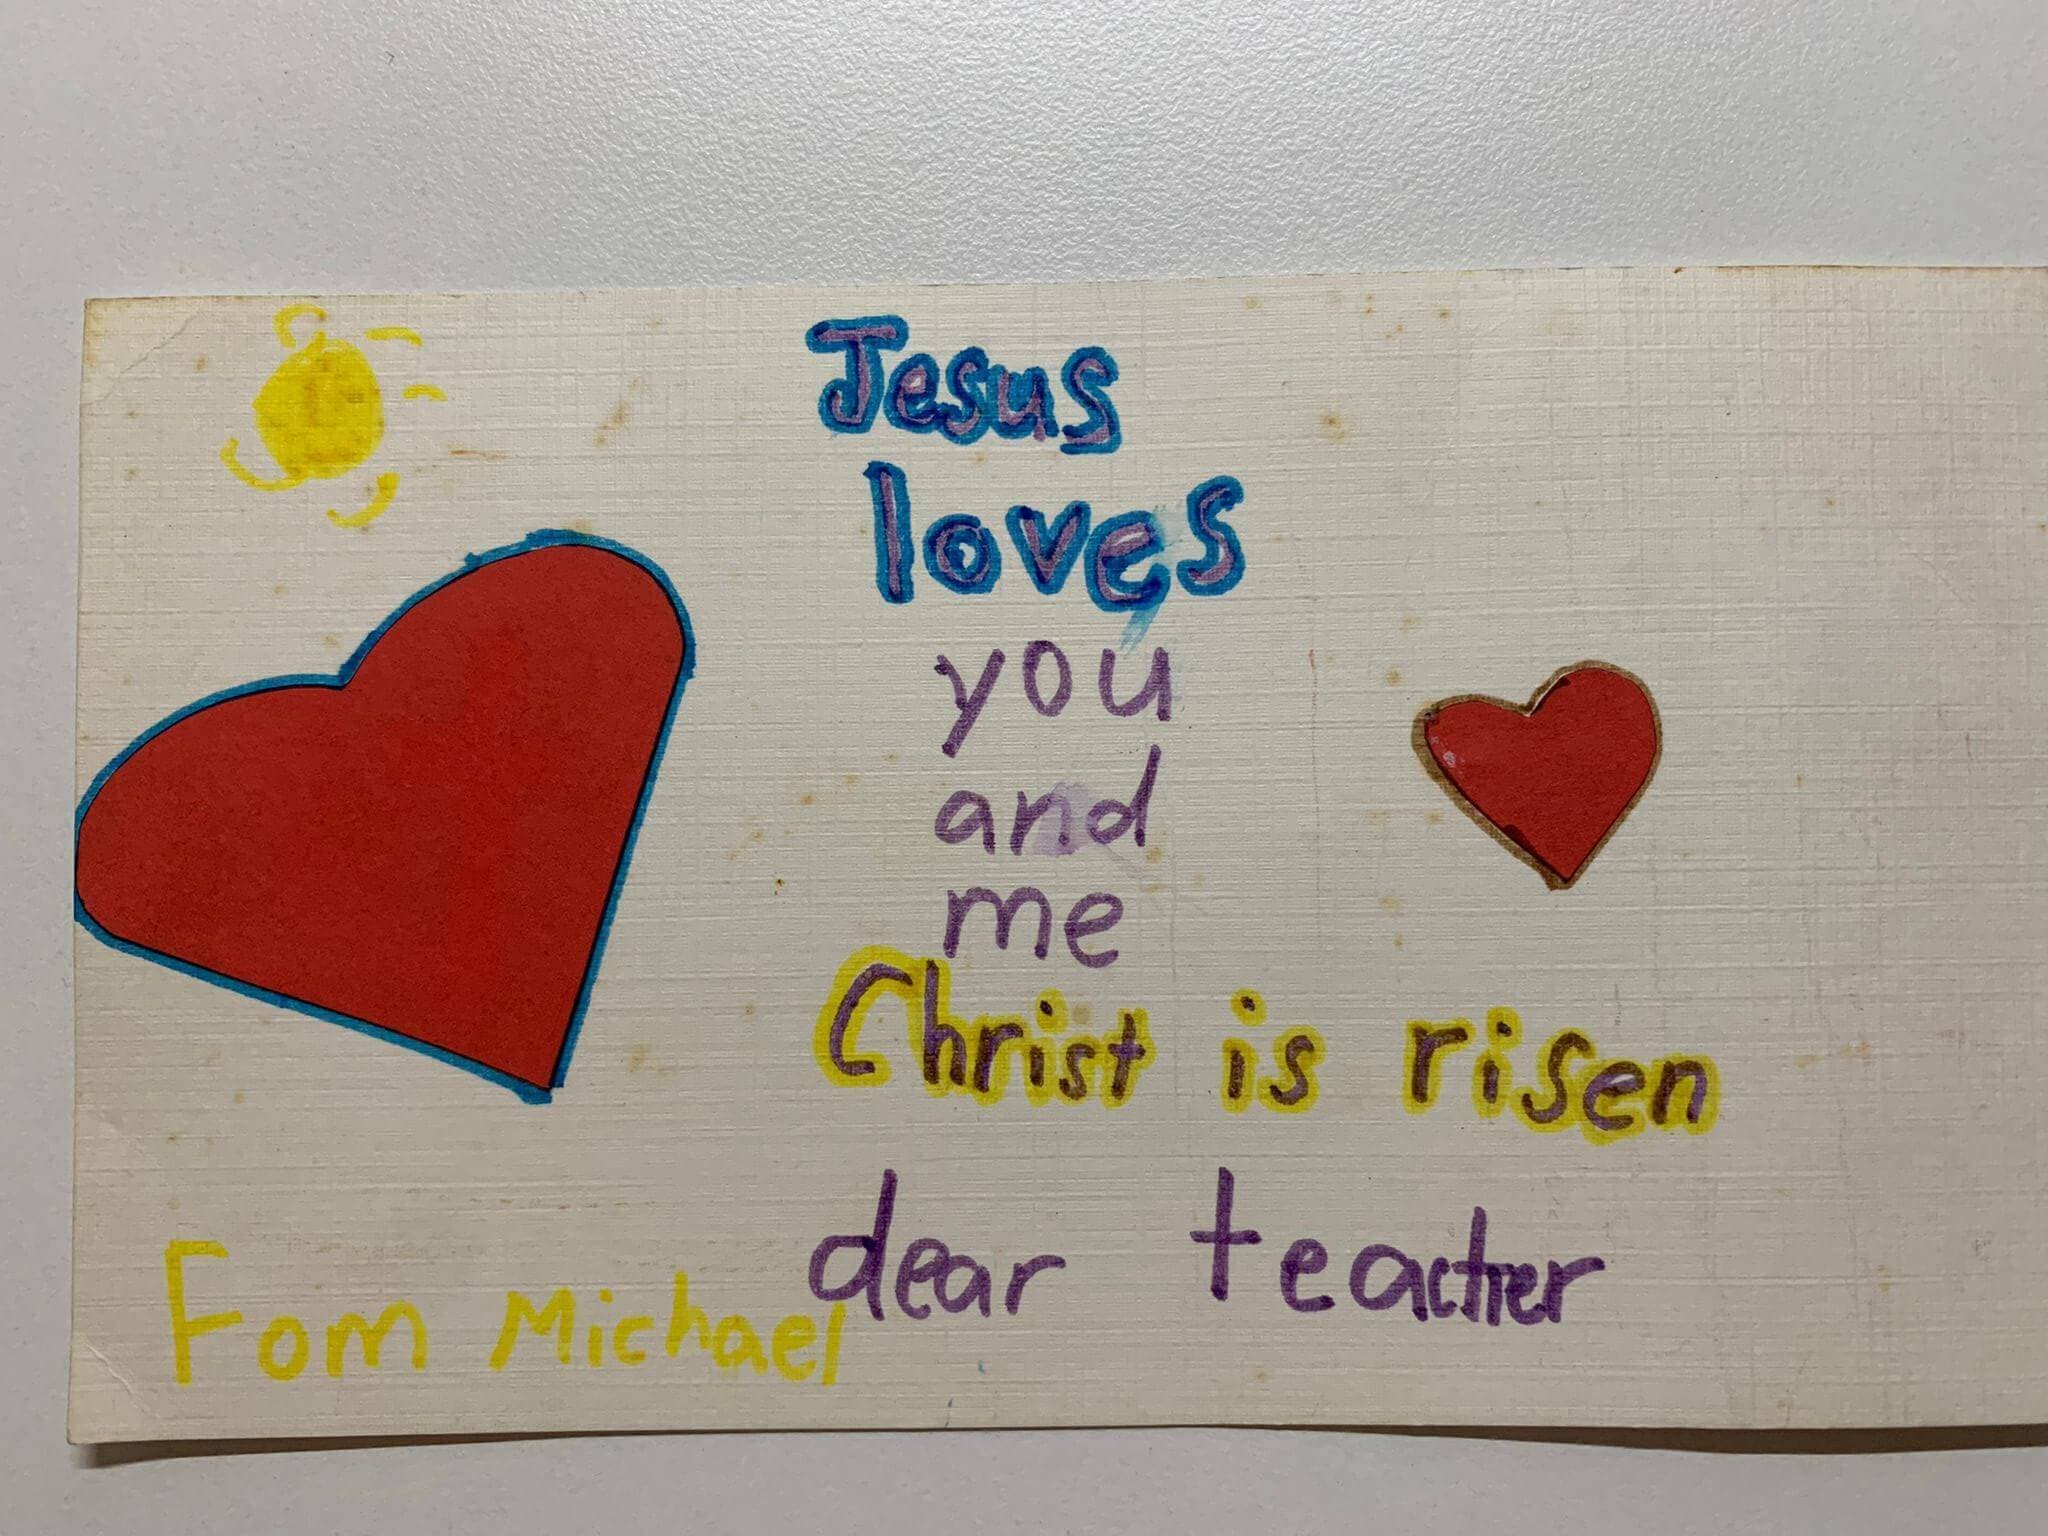 Jesus
loves
you
and
me
Christ is risen
dear teacher
Fom Michael